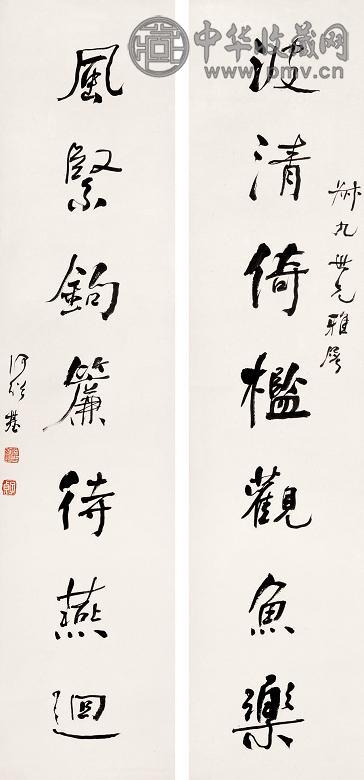 中华收藏网
www.pmv.cn
波清倚檻觀魚樂
風緊鉤簾待燕迴
九世兄雅屬
何紹基